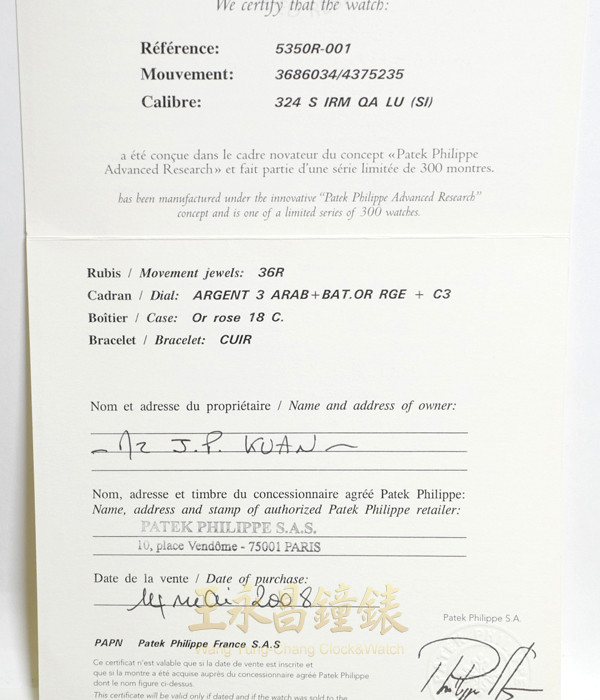 We certify that the watch:
Référence: 5350R-001
Mouvement: 3686034/4375235
Calibre: 324 S IRM QA LU (SI)
a été conçue dans le cadre novateur du concept «Patek Philippe
Advanced Research» et fait partie d'une série limitée de 300 montres.
has been manufactured under the innovative "Patek Philippe Advanced Research"
concept and is one of a limited series of 300 watches.
Rubis / Movement jewels: 36R
Cadran / Dial: ARGENT 3 ARAB+BAT.OR RGE + C3
Boîtier / Case: Or rose 18 C.
Bracelet / Bracelet: CUIR
Nom et adresse du propriétaire / Name and address of owner:
Mr J.P. KUAN
Nom, adresse et timbre du concessionnaire agréé Patek Philippe:
Name, address and stamp of authorized Patek Philippe retailer:
PATEK PHILIPPE S.A.S.
10, place Vendôme - 75001 PARIS
Date de la vente / Date of purchase:
14 mai 2008
王永昌鐘錶
Wang Yung-Chang Clock&Watch
Patek Philippe S.A.
PAPN Patek Philippe France S.A.S
Ce certificat n'est valable que si la date de vente est inscrite et
que si la montre a été acquise auprès du concessionnaire agréé Patek Philippe
dont le nom figure ci-dessus.
This certificate will be valid only if dated and if the watch was sold to the